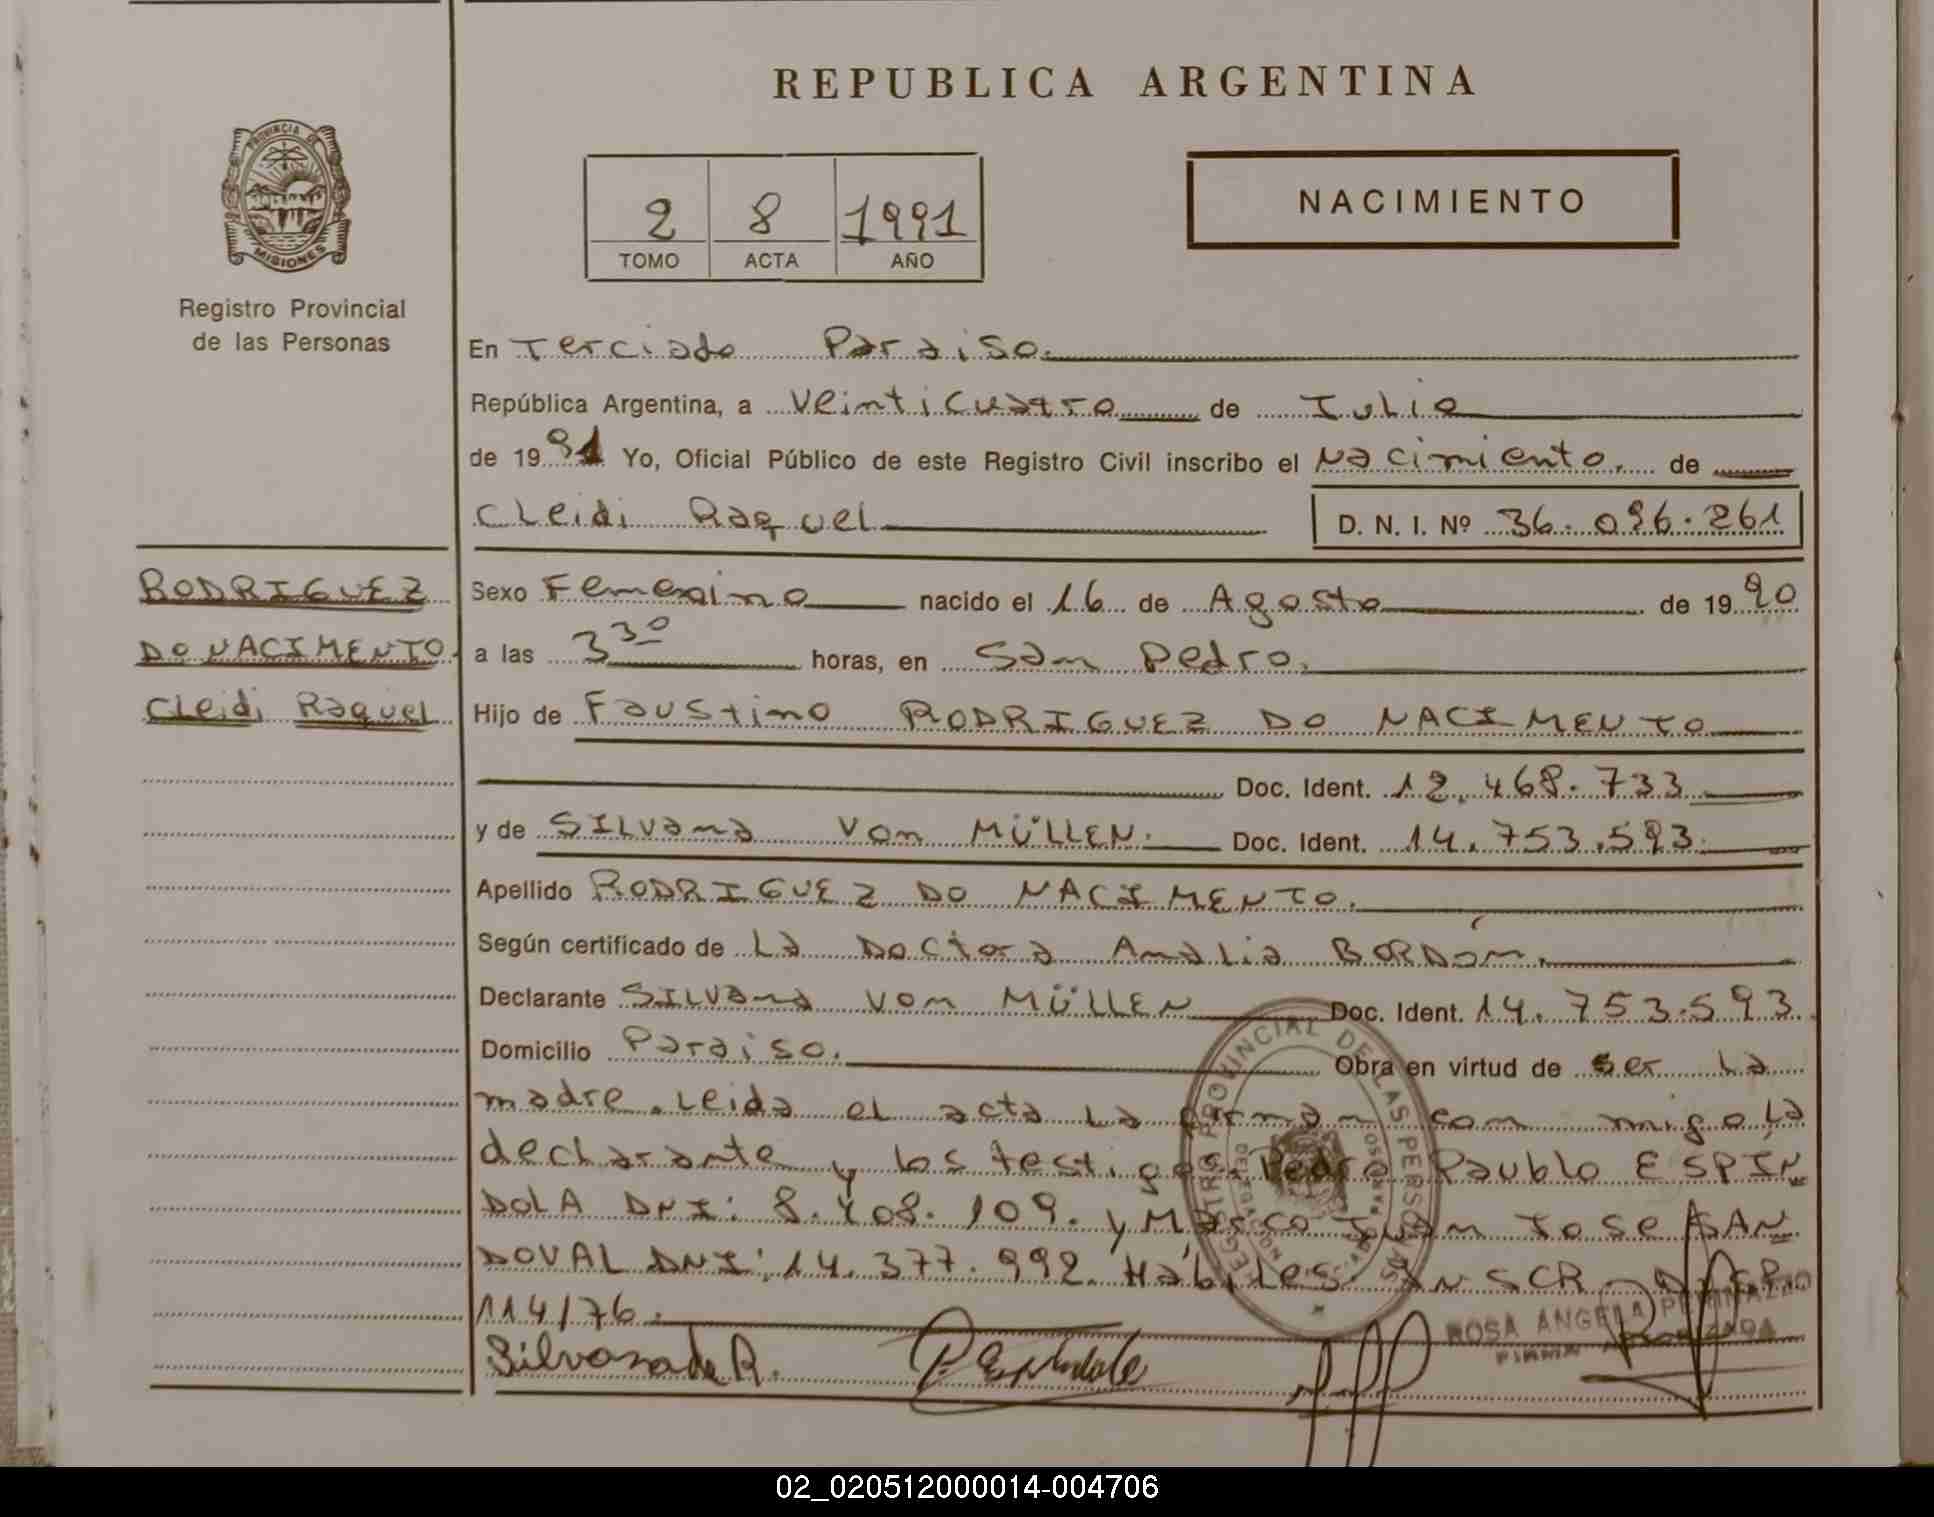 REPUBLICA ARGENTINA
PROVINCIA DE
MISIONES
Registro Provincial
de las Personas
2 8 1991
TOMO ACTA AÑO
NACIMIENTO
En Terciado Paraiso.
República Argentina, a veinticuatro de Julio
de 1991 Yo, Oficial Público de este Registro Civil inscribo el Nacimiento. de
Cleidi Raquel D. N. I. Nº 36.096.261
RODRIGUEZ
DO NACIMENTO.
Cleidi Raquel
Sexo Femenino nacido el 16 de Agosto de 1990
a las 3 30 horas, en San Pedro.
Hijo de Faustino RODRIGUEZ DO NACIMENTO
Doc. Ident. 12.468.733
y de SILVana Von MÜLLEN. Doc. Ident. 14.753.593.
Apellido RODRIGUEZ DO NACIMENTO.
Según certificado de La Doctora Amalia BORDÓN.
Declarante SILVana Von MÜLLEN Doc. Ident. 14.753.593.
Domicilio Paraiso. Obra en virtud de ser la
madre. Leida el acta la firman con migo la
declarante y los testigos Pedro Paublo ESPIN
DOLA DNI: 8.408.109. y Marco Juan Jose SAN
DOVAL DNI: 14.377.992. Hábiles. INSCR. DISP.
114/76.
REGISTRO PROVINCIAL DE LAS PERSONAS
DELEGACION
PARAISO
ROSA ANGELA
FIRMA AUTORIZADA
Silvana de R.
02_020512000014-004706